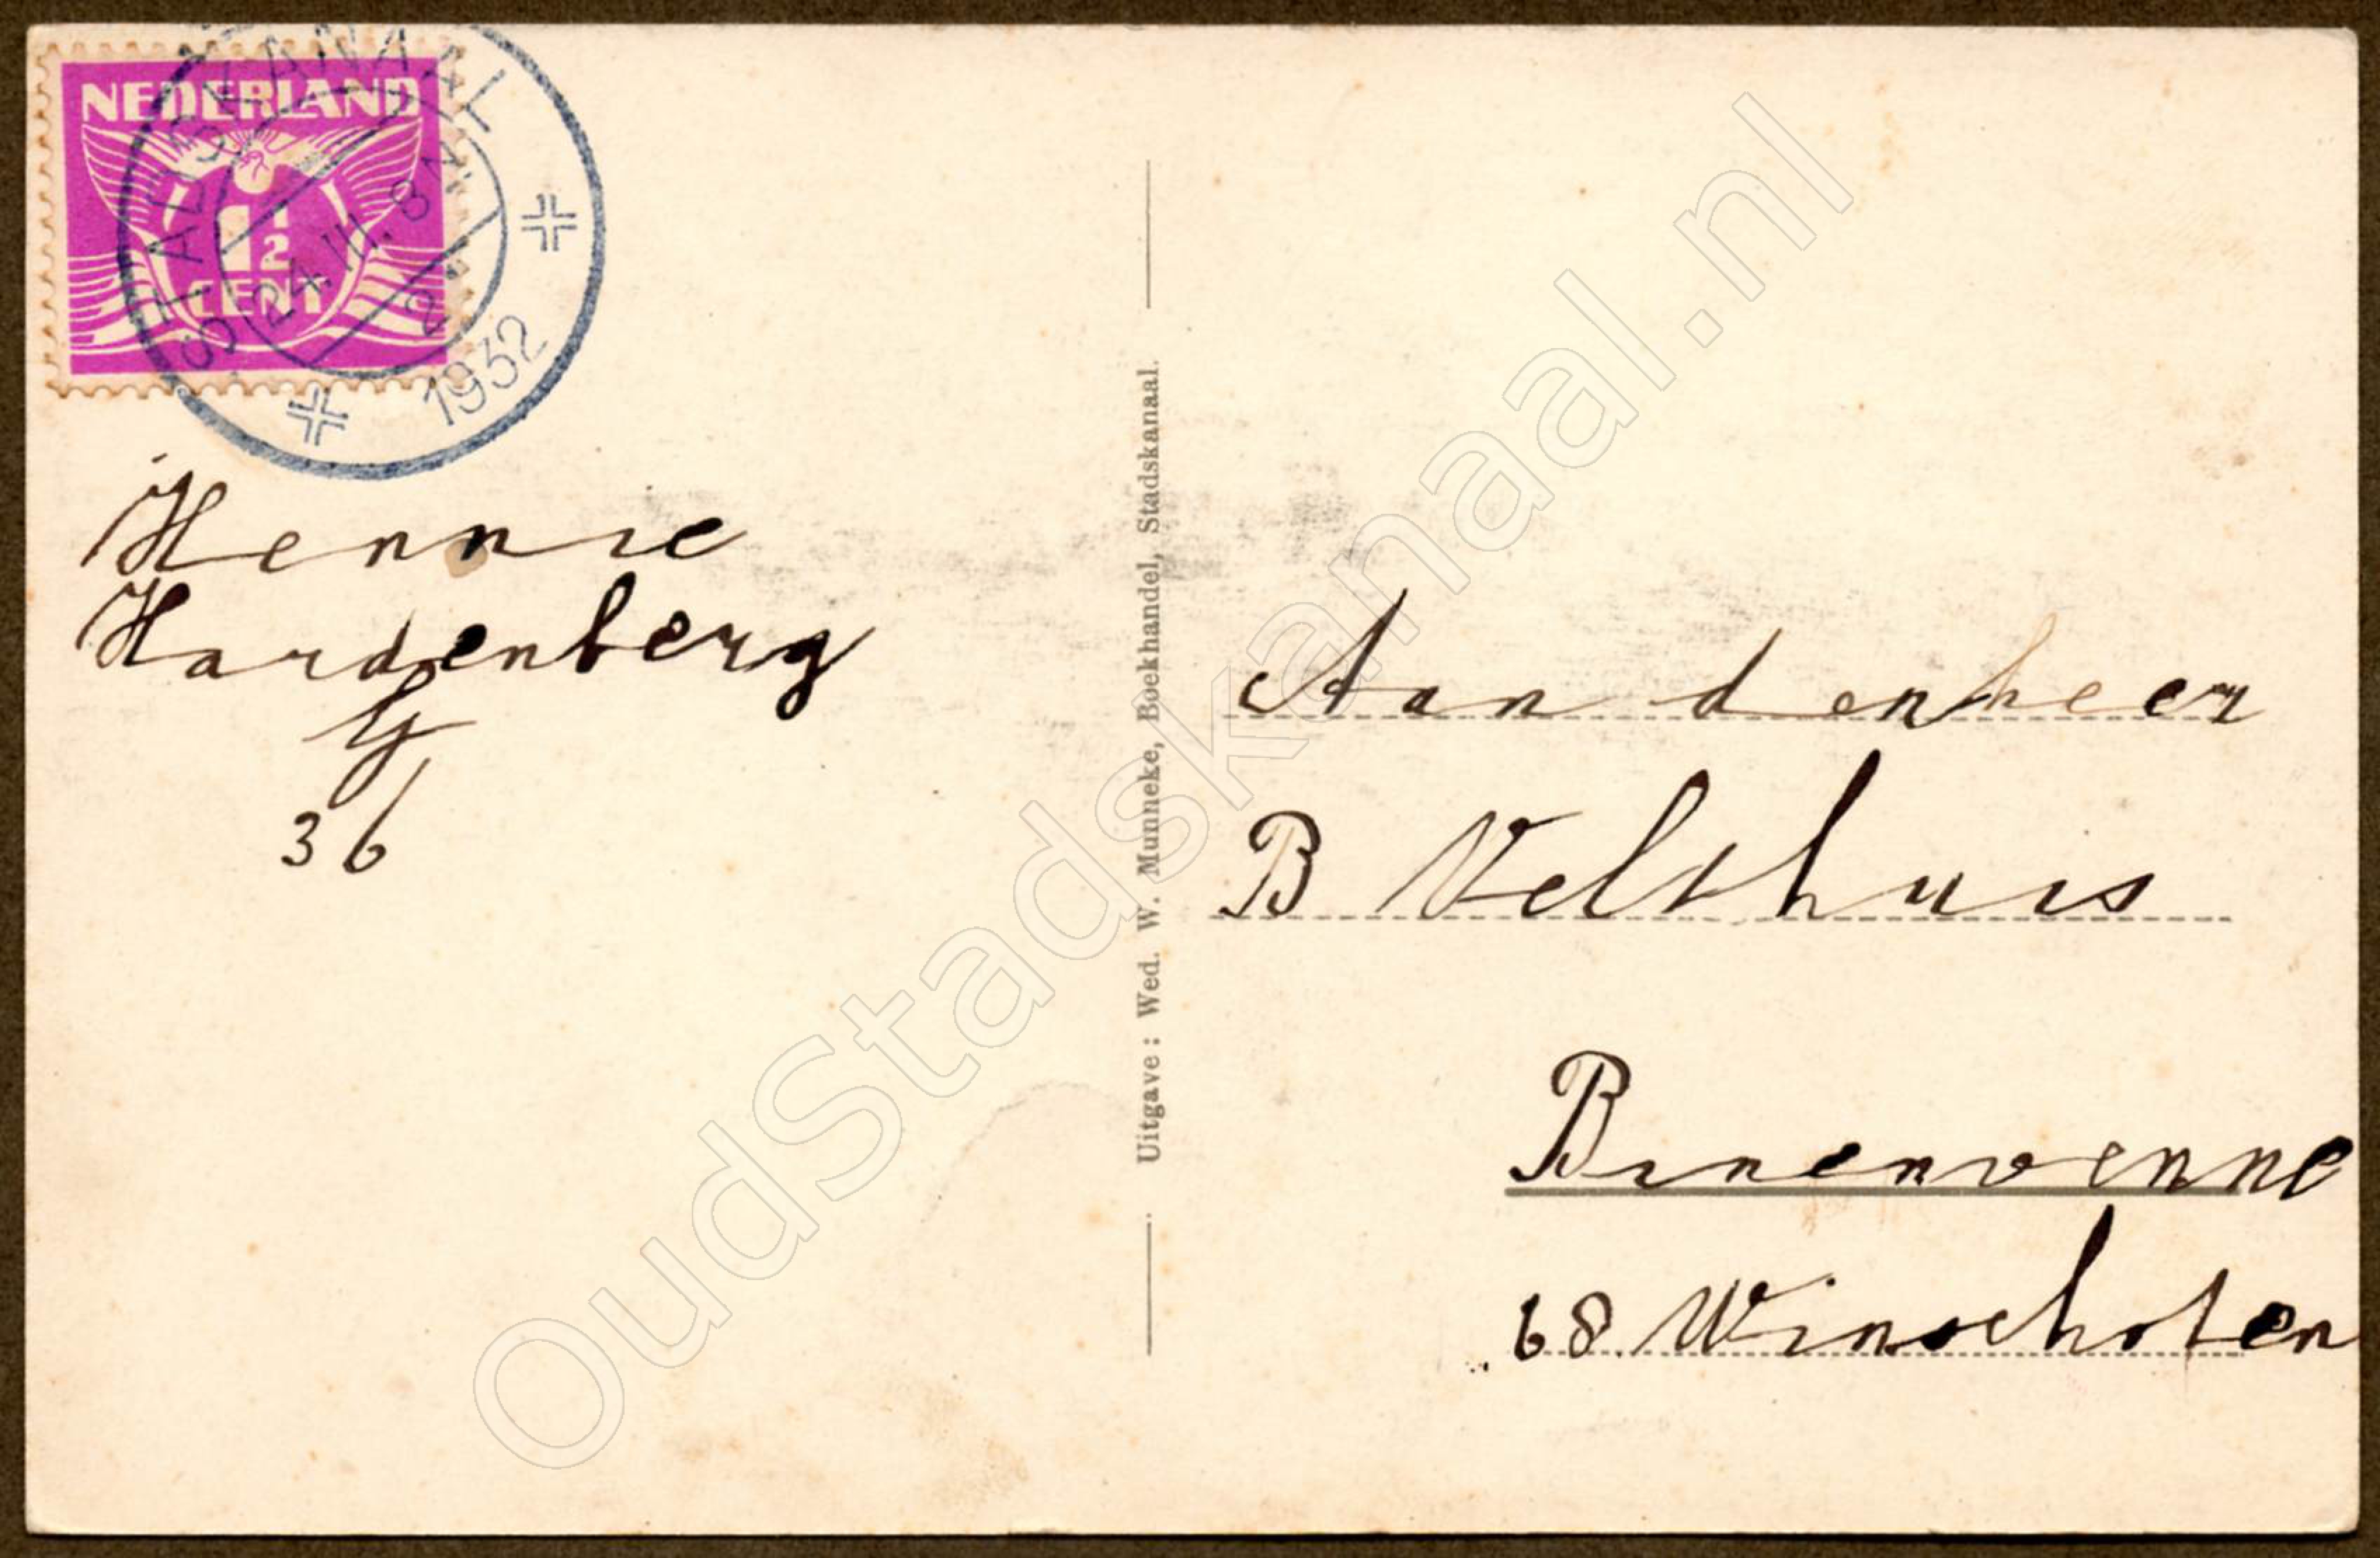 NEDERLAND
1½
CENT
STADSKANAAL
24.III.8 VM
1932
Hennie
Hardenberg
36
Uitgave : Wed. W. Munneke, Boekhandel, Stadskanaal.
Aan den heer
B Velthuis
Binenvenne
68 Winschoten
OudStadskanaal.nl